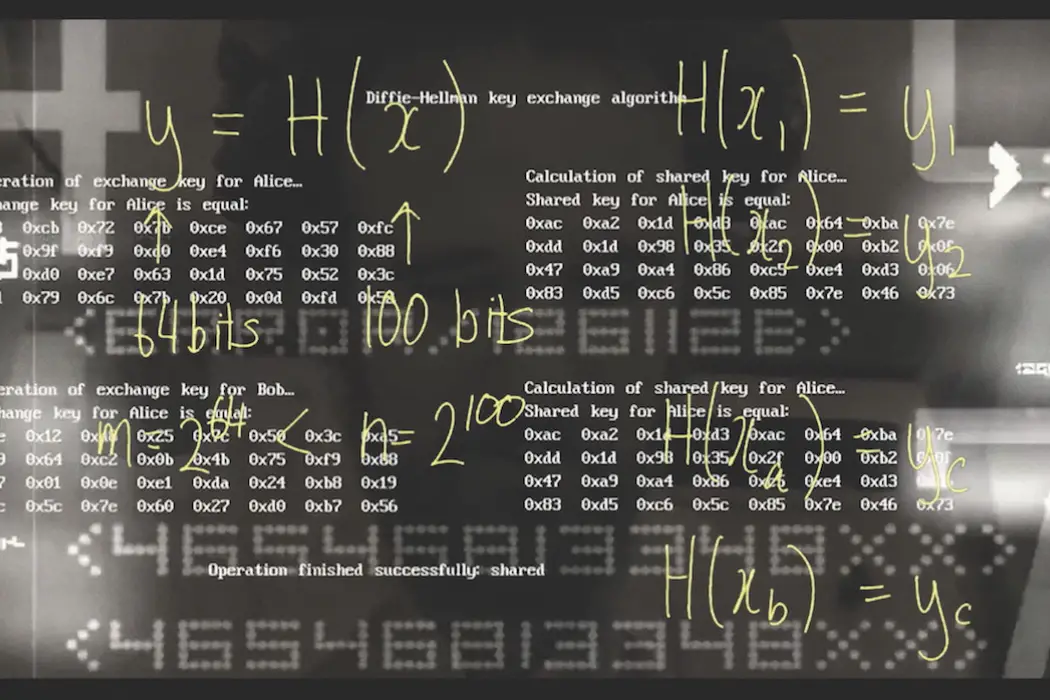 Diffie-Hellman key exchange algorith
y = H(x)
H(x₁) = y₁
H(x₂) = y₂
eration of exchange key for Alice…
ange key for Alice is equal:
0xcb 0x72 0x7b 0xce 0x67 0x57 0xfc
0x9f 0xf9 0xd0 0xe4 0xf6 0x30 0x88
0xd0 0xe7 0x63 0x1d 0x75 0x52 0x3c
0x79 0x6c 0x7b 0x20 0x0d 0xfd
64 bits
100 bits
Calculation of shared key for Alice…
Shared key for Alice is equal:
0xac 0xa2 0x1d 0xd3 0xac 0x64 0xba 0x7e
0xdd 0x1d 0x98 0x35 0x2f 0x00 0xb2 0x0f
0x47 0xa9 0xa4 0x86 0xc5 0xe4 0xd3 0x06
0x83 0xd5 0xc6 0x5c 0x85 0x7e 0x46 0x73
eration of exchange key for Bob…
hange key for Alice is equal:
0x12 0x25 0x50 0x3c 0xa5
0x64 0xc2 0x0b 0x4b 0x75 0xf9 0x88
0x01 0x0e 0xe1 0xda 0x24 0xb8 0x19
0x5c 0x7e 0x60 0x27 0xd0 0xb7 0x56
m = 2⁶⁴ < n = 2¹⁰⁰
Calculation of shared key for Alice…
Shared key for Alice is equal:
0xac 0xa2 0x1d 0xd3 0xac 0x64 0xba 0x7e
0xdd 0x1d 0x98 0x35 0x2f 0x00 0xb2 0x0f
0x47 0xa9 0xa4 0x86 0xe4 0xd3
0x83 0xd5 0xc6 0x5c 0x85 0x7e 0x46 0x73
H(xₐ) = y꜀
H(x_b) = y꜀
<46546813348XX>
Operation finished successfully: shared
<46546813348XX>